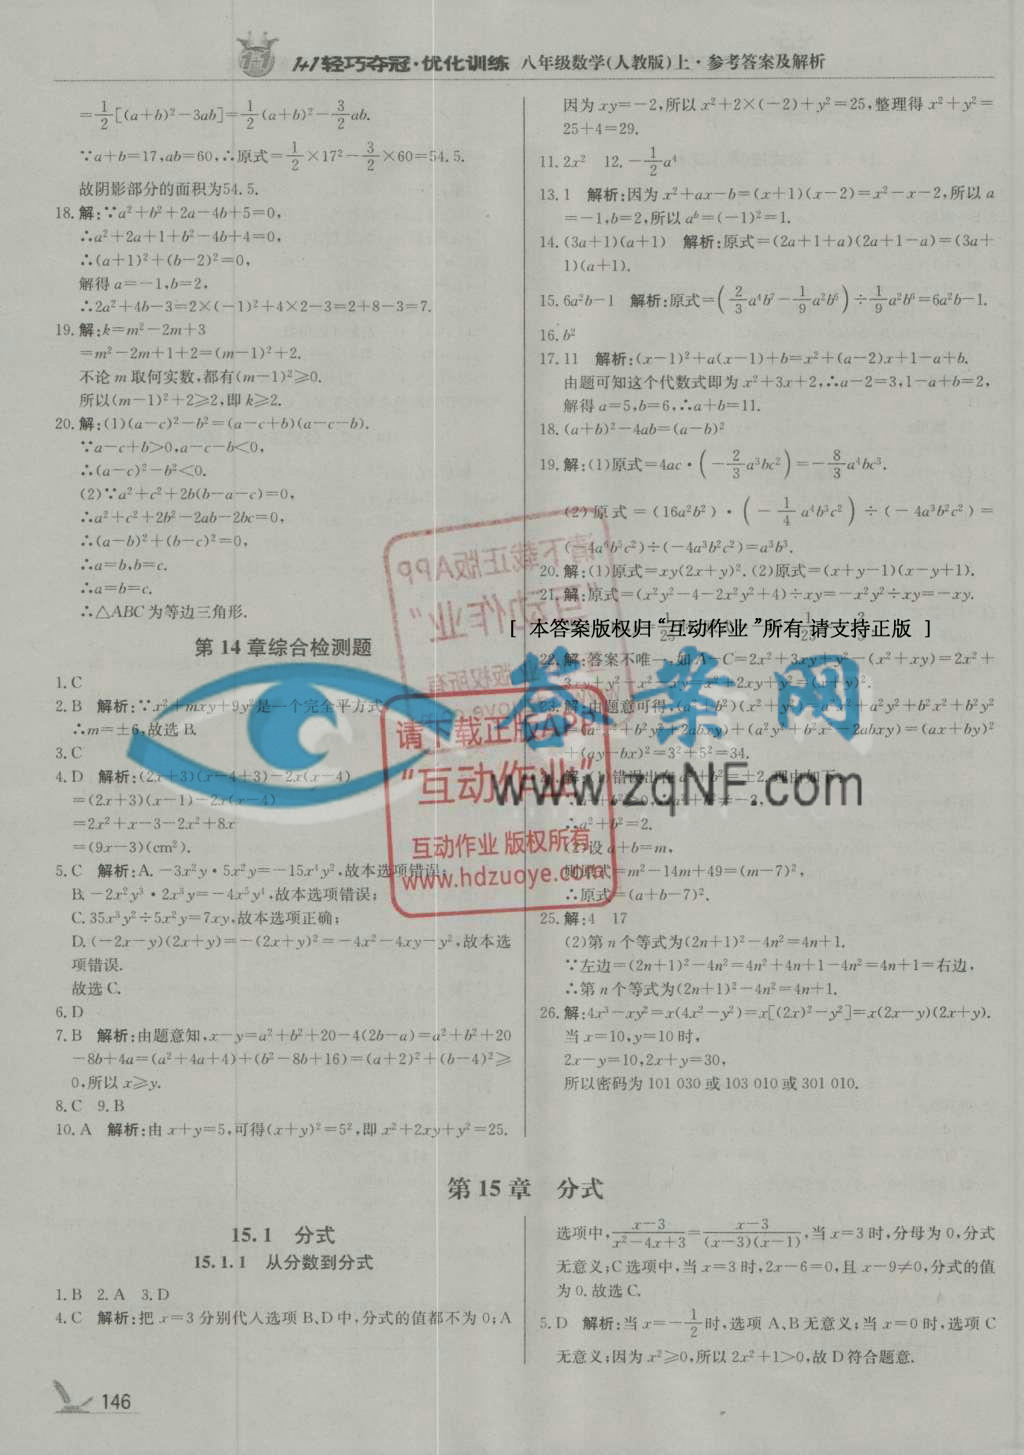 1+1轻巧夺冠·优化训练 八年级数学(人教版)上·参考答案及解析
=1/2[(a+b)²-3ab]=1/2(a+b)²-3/2ab.
∵a+b=17,ab=60,∴原式=1/2×17²-3/2×60=54.5.
故阴影部分的面积为54.5.
18.解:∵a²+b²+2a-4b+5=0,
∴a²+2a+1+b²-4b+4=0,
∴(a+1)²+(b-2)²=0,
解得a=-1,b=2,
∴2a²+4b-3=2×(-1)²+4×2-3=2+8-3=7.
19.解:k=m²-2m+3
=m²-2m+1+2=(m-1)²+2.
不论m取何实数,都有(m-1)²≥0.
所以(m-1)²+2≥2,即k≥2.
20.解:(1)(a-c)²-b²=(a-c+b)(a-c-b).
∵a-c+b>0,a-c-b<0,
∴(a-c)²-b²<0.
(2)∵a²+c²+2b(b-a-c)=0,
∴a²+c²+2b²-2ab-2bc=0,
∴(a-b)²+(b-c)²=0,
∴a=b,b=c.
∴a=b=c.
∴△ABC为等边三角形.
第14章综合检测题
1.C
2.B 解析:∵x²+mxy+9y²是一个完全平方式,
∴m=±6,故选B.
3.C
4.D 解析:(2x+3)(x-4+3)-2x(x-4)
=(2x+3)(x-1)-2x(x-4)
=2x²+x-3-2x²+8x
=(9x-3)(cm²).
5.C 解析:A.-3x²y·5x²y=-15x⁴y²,故本选项错误;
B.-2x²y³·2x³y=-4x⁵y⁴,故本选项错误;
C.35x³y²÷5x²y=7xy,故本选项正确;
D.(-2x-y)(2x+y)=-(2x+y)²=-4x²-4xy-y²,故本选
项错误.
故选C.
6.D
7.B 解析:由题意知,x-y=a²+b²+20-4(2b-a)=a²+b²+20
-8b+4a=(a²+4a+4)+(b²-8b+16)=(a+2)²+(b-4)²≥
0,所以x≥y.
8.C 9.B
10.A 解析:由x+y=5,可得(x+y)²=5²,即x²+2xy+y²=25.
因为xy=-2,所以x²+2×(-2)+y²=25,整理得x²+y²=
25+4=29.
11.2x² 12.-1/2a⁴
13.1 解析:因为x²+ax-b=(x+1)(x-2)=x²-x-2,所以a
=-1,b=2,所以aᵇ=(-1)²=1.
14.(3a+1)(a+1) 解析:原式=(2a+1+a)(2a+1-a)=(3a+
1)(a+1).
15.6a²b-1 解析:原式=(2/3a⁴b⁷-1/9a²b⁶)÷1/9a²b⁶=6a²b-1.
16.b²
17.11 解析:(x-1)²+a(x-1)+b=x²+(a-2)x+1-a+b.
由题可知这个代数式即为x²+3x+2,∴a-2=3,1-a+b=2,
解得a=5,b=6,∴a+b=11.
18.(a+b)²-4ab=(a-b)²
19.解:(1)原式=4ac·(-2/3a³bc²)=-8/3a⁴bc³.
(2)原式=(16a²b²)·(-1/4a⁴b³c²)÷(-4a³b²c²)=
(-4a⁶b⁵c²)÷(-4a³b²c²)=a³b³.
20.解:(1)原式=xy(2x+y)².(2)原式=(x+y-1)(x-y+1).
21.解:原式=(x²y²-4-2x²y²+4)÷xy=-x²y²÷xy=-xy.
[ 本答案版权归“互动作业”所有 请支持正版 ]
22.解:答案不唯一,如A-C=2x²+3xy+y²-(x²+xy)=2x²+
3xy+y²-x²-xy=x²+2xy+y²=(x+y)².
23.解:由题意可得,(a²+b²)(x²+y²)=a²x²+a²y²+b²x²+b²y²
=(a²x²+b²y²+2abxy)+(a²y²+b²x²-2abxy)=(ax+by)²
+(ay-bx)²=3²+5²=34.
∴a²+b²=2.
(2)设a+b=m,
则原式=m²-14m+49=(m-7)²,
∴原式=(a+b-7)².
25.解:4 17
(2)第n个等式为(2n+1)²-4n²=4n+1.
∵左边=(2n+1)²-4n²=4n²+4n+1-4n²=4n+1=右边,
∴第n个等式为(2n+1)²-4n²=4n+1.
26.解:4x³-xy²=x(4x²-y²)=x[(2x)²-y²]=x(2x-y)(2x+y).
当x=10,y=10时,
2x-y=10,2x+y=30,
所以密码为101 030或103 010或301 010.
答案网
www.zqNF.com
请下载正版APP
“互动作业”
互动作业 版权所有
www.hdzuoye.com
第15章 分式
15.1 分式
15.1.1 从分数到分式
1.B 2.A 3.D
4.C 解析:把x=3分别代入选项B、D中,分式的值都不为0;A
选项中,x-3/x²-4x+3=x-3/(x-3)(x-1),当x=3时,分母为0,分式
无意义;C选项中,当x=3时,2x-6=0,且x-9≠0,分式的值
为0.故选C.
5.D 解析:当x=-1/2时,选项A、B无意义;当x=0时,选项C
无意义;因为x²≥0,所以2x²+1>0,故D符合题意.
146